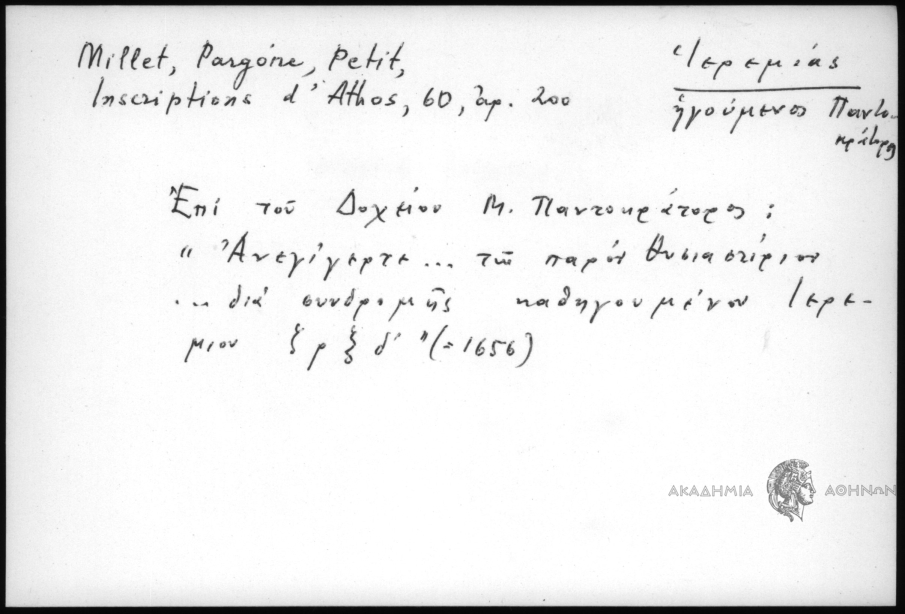 Millet, Pargoire, Petit,
Inscriptions d'Athos, 60, ἀρ. 200
Ἱερεμίας
ἡγούμενος Παντο-
κράτορος
Ἐπί τοῦ Δοχείου Μ. Παντοκράτορος :
"Ἀνεγίγερτε... τῶ παρόν θυσιαστίριον
... διά συνδρομῆς καθηγουμένου Ιερε-
μιου ζρξδ' "(=1656)
ΑΚΑΔΗΜΙΑ ΑΘΗΝΩΝ